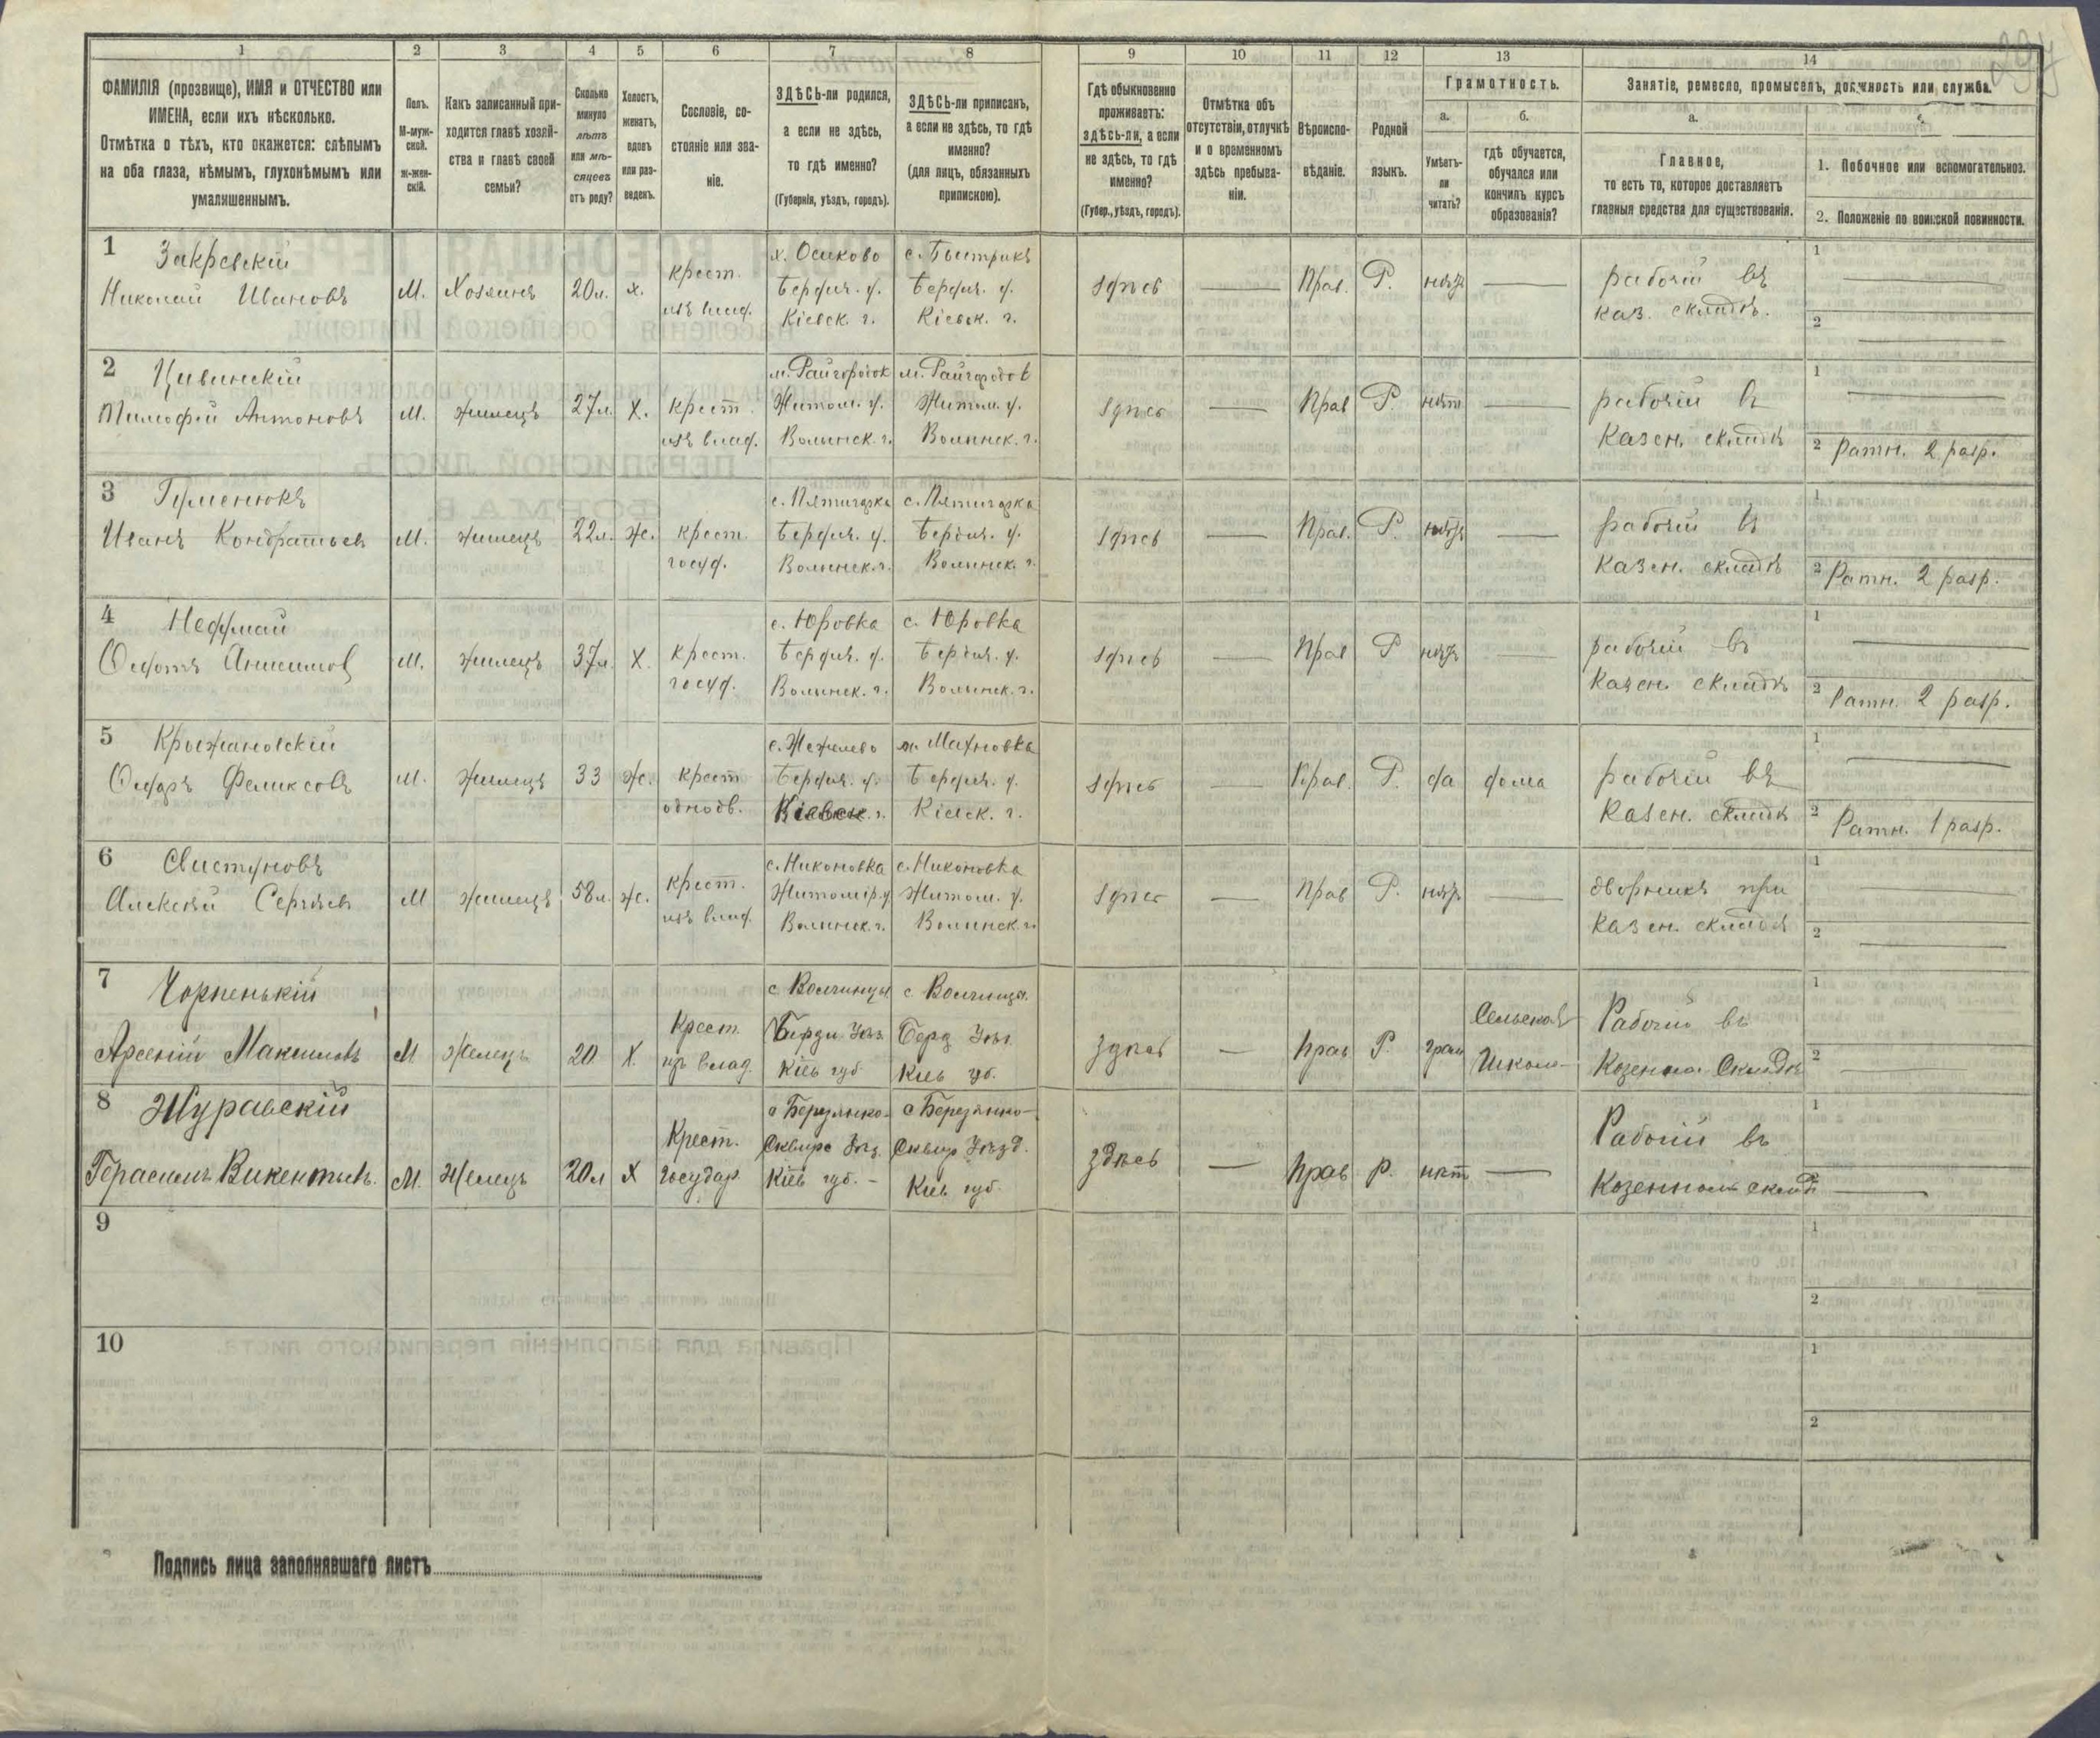 297
1
2
3
4
5
6
7
8
9
10
11
12
13
14
ФАМИЛІЯ (прозвище), ИМЯ и ОТЧЕСТВО или
ИМЕНА, если ихъ нѣсколько.
Отмѣтка о тѣхъ, кто окажется: слѣпымъ
на оба глаза, нѣмымъ, глухонѣмымъ или
умалишеннымъ.
Полъ.
М-муж-
ской.
ж-жен-
скій.
Какъ записанный при-
ходится главѣ хозяй-
ства и главѣ своей
семьи?
Сколько
минуло
лѣтъ
или мѣ-
сяцевъ
отъ роду?
Холостъ,
женатъ,
вдовъ
или раз-
веденъ.
Сословіе, со-
стояніе или зва-
ніе.
ЗДѢСЬ-ли родился,
а если не здѣсь,
то гдѣ именно?
(Губернія, уѣздъ, городъ).
ЗДѢСЬ-ли приписанъ,
а если не здѣсь, то гдѣ
именно?
(для лицъ, обязанныхъ
припискою).
Гдѣ обыкновенно
проживаетъ:
здѣсь-ли, а если
не здѣсь, то гдѣ
именно?
(Губер., уѣздъ, городъ).
Отмѣтка объ
отсутствіи, отлучкѣ
и о временномъ
здѣсь пребыва-
ніи.
Вѣроиспо-
вѣданіе.
Родной
языкъ.
Грамотность.
а.
Умѣетъ-
ли
читать?
б.
гдѣ обучается,
обучался или
кончилъ курсъ
образованія?
Занятіе, ремесло, промыселъ, должность или служба.
а.
Главное,
то есть то, которое доставляетъ
главныя средства для существованія.
1. Побочное или вспомогательное.
2. Положеніе по воинской повинности.
1
Закревскій
Николай Ивановъ
М.
Хозяинъ
20л.
х.
крест.
изъ влад.
х. Осиково
Бердич. у.
Кіевск. г.
с. Быстрикъ
Бердич. у.
Кіевск. г.
здѣсь
—
Прав.
Р.
нѣтъ
—
рабочій въ
каз. складѣ.
1 —
2 —
2
Цивинскій
Тимофей Антоновъ
М.
жилецъ
27л.
х.
крест.
изъ влад.
м. Райгородок
Житом. у.
Волынск. г.
м. Райгородок
Житом. у.
Волынск. г.
здѣсь
—
Прав
Р.
нѣт
—
рабочій в
казен. складѣ
1 —
2 Ратн. 2 разр.
3
Гуменюкъ
Иванъ Кондратьев
М.
жилецъ
22л.
ж.
крест.
госуд.
с. Пятигорка
Бердич. у.
Волынск. г.
с. Пятигорка
Бердич. у.
Волынск. г.
здѣсь
—
Прав.
Р.
нѣтъ
—
рабочій в
казен. складѣ
1
2 Ратн. 2 разр.
4
Онисимов
М.
жилецъ
37л.
х.
крест.
госуд.
с. Юровка
Бердич. у.
Волынск. г.
с. Юровка
Бердич. у.
Волынск. г.
здѣсь
—
Прав
Р
нѣтъ
—
рабочій въ
казен. складѣ
1 —
2 Ратн. 2 разр.
5
Крыжановскій
Феликсовъ
М.
жилецъ
33
ж.
крест
однодв.
с. Жежелево
Бердич. у.
Кіевск. г.
м. Махновка
Бердич. у.
Кіевск. г.
здѣсь
—
Прав.
Р.
да
дома
рабочій въ
казен. складѣ
1 —
2 Ратн. 1 разр.
6
Свистуновъ
Алексѣй Сергѣев
М
жилецъ
58л.
ж.
крест.
изъ влад.
с. Никоновка
Житомір. у
Волынск. г.
с. Никоновка
Житом. у.
Волынск. г.
здѣсь
—
Прав
Р.
нѣтъ
—
дворникъ при
казен. складѣ
1 —
2 —
7
Чорненькій
Арсеній Максимовъ
М.
Жилецъ
20
х.
Крест.
изъ влад.
с Волчинцы
Бердич Уѣз.
Кіев губ
с Волчинцы.
Берд Уѣз.
Кіев губ.
здѣсь
—
прав
Р.
грам
Сельская
Школа
Рабочій въ
Козенном Складѣ
1
2 —
8
Журавскій
Герасимъ Викентьев.
М.
Жилецъ
20л
х
Крест.
Государ.
с Березянка
Сквирс Уѣз.
Кіев губ. -
с Березянка
Сквир Уѣзд.
Кіев губ.
здѣсь
—
прав
р.
нѣт
—
Рабочій въ
Козенном складѣ
1
2 —
9
1
2
10
1
2
Подпись лица заполнявшаго листъ